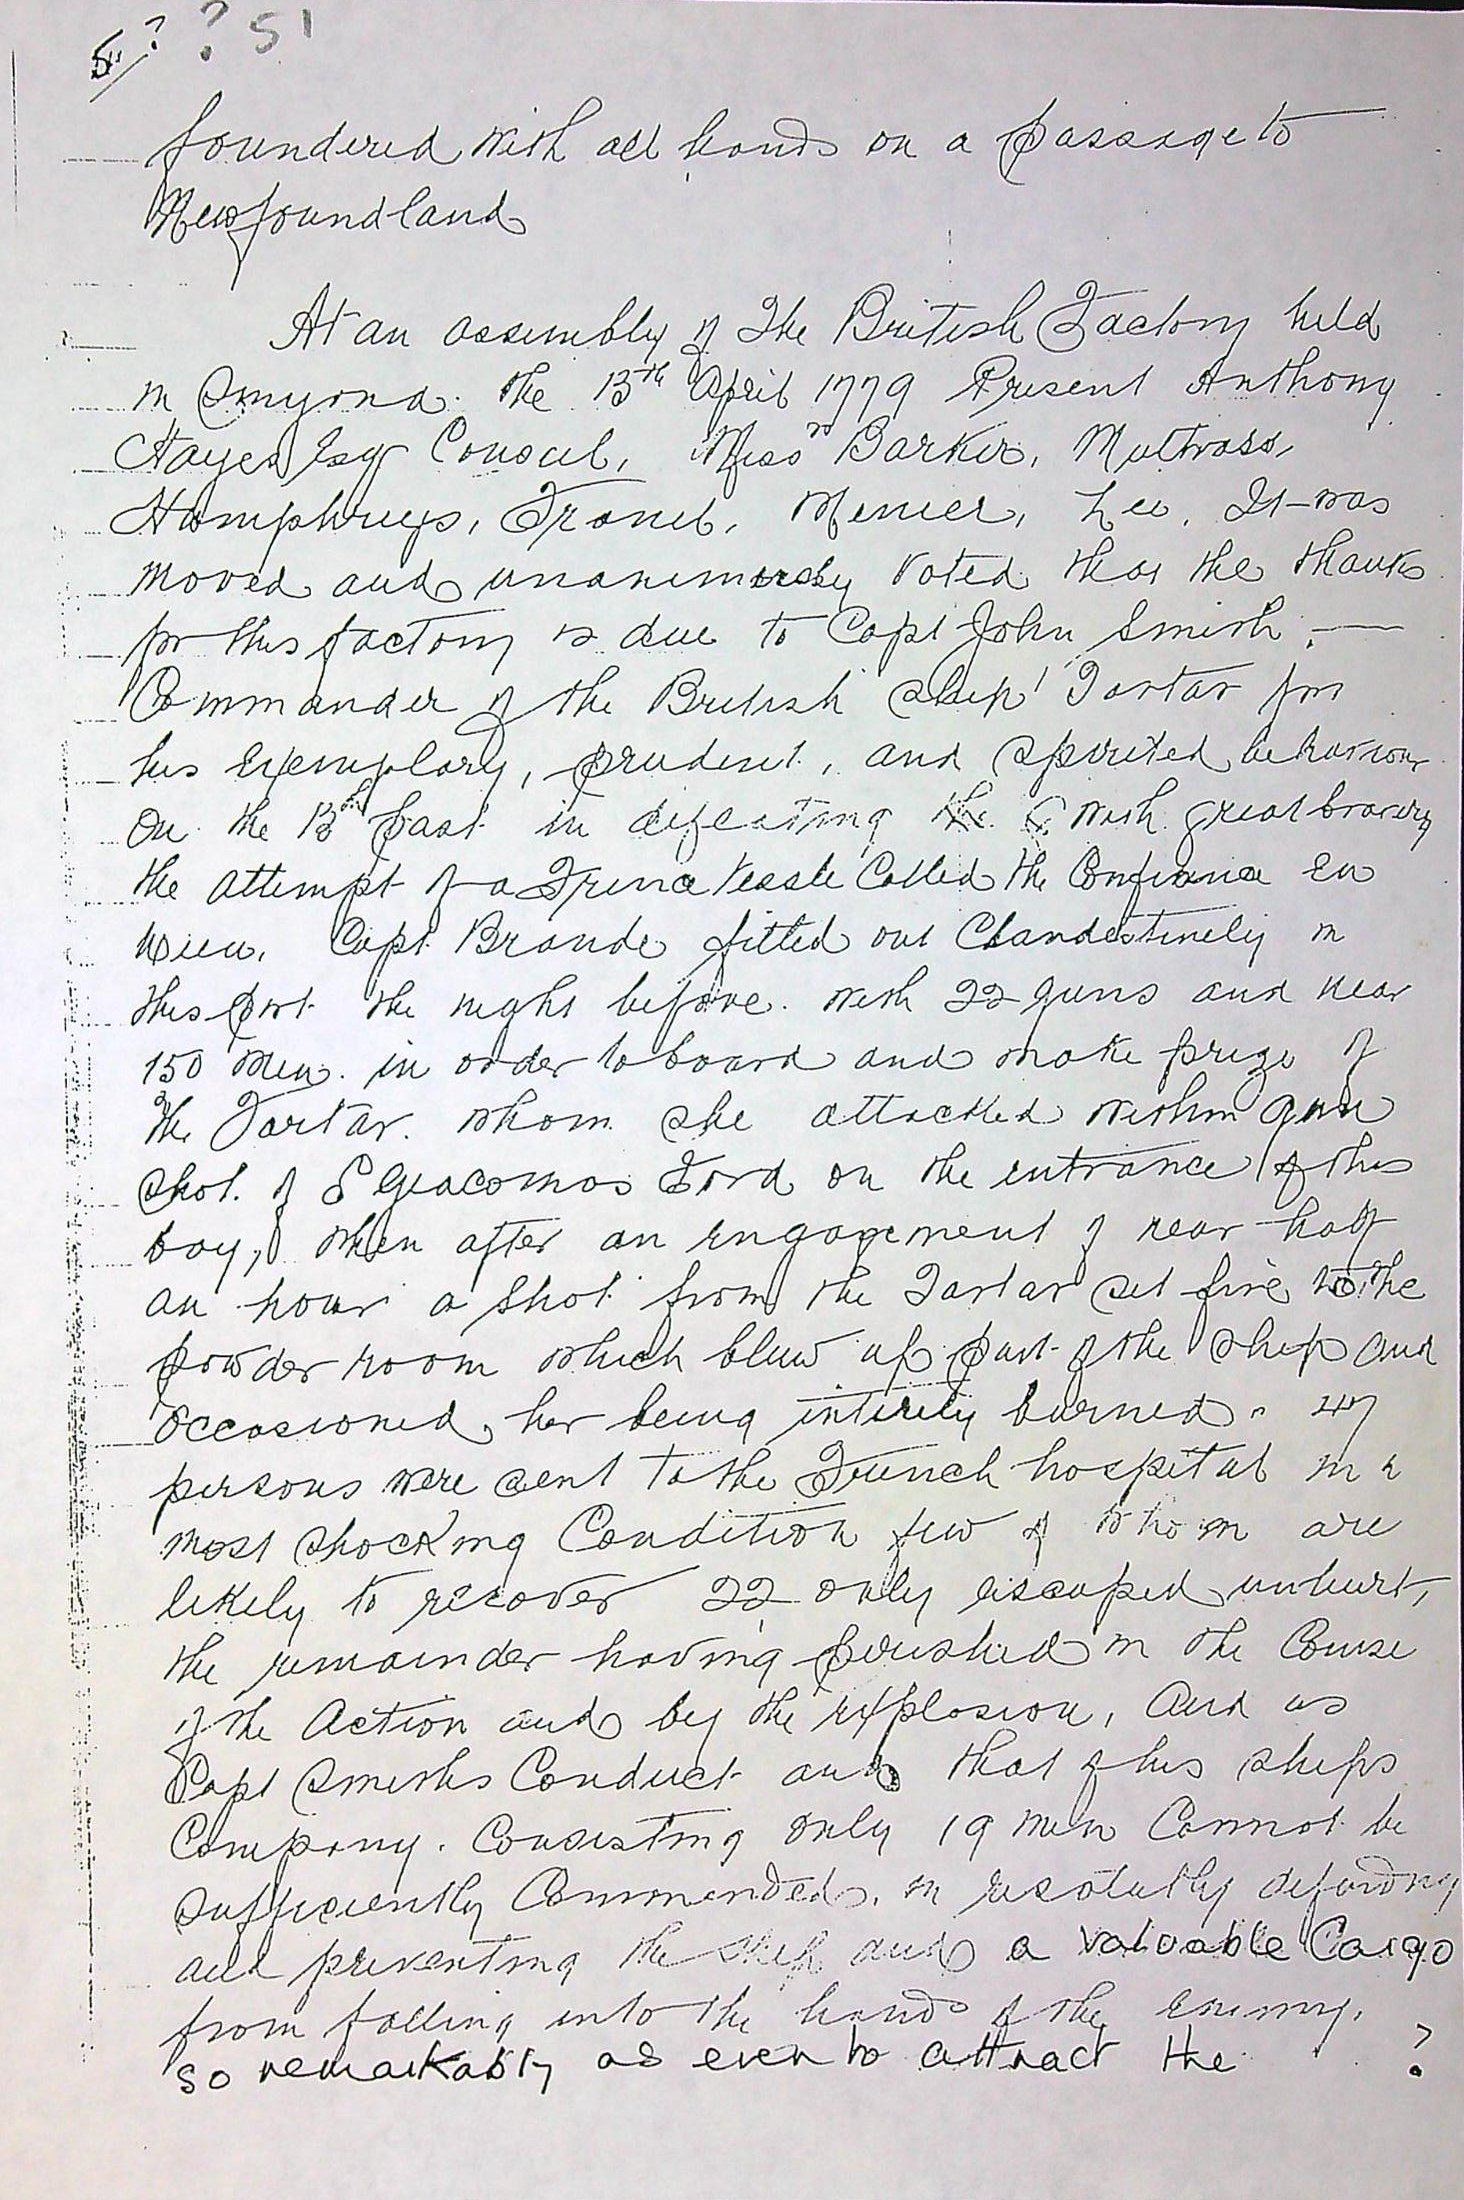 5? ? 51
foundered with all hands on a passage to
Newfoundland
At an assembly of The British Factory held
in Smyrna. the 13th April 1779 Present Anthony
Hayes Esq Consul, Messrs Barker, Maltrass,
Humphreys, Franel, Menier, Lee. It was
moved and unanimously voted that the thanks
for this factory is due to Capt John Smith. —
Commander of the British Ship Tartar for
his exemplary, prudent, and spirited behaviour
on the 13th past in defeating the with great bravery
the attempt of a French vessle Called the Confiance En
Capt. Brande fitted out Clandestinely in
this port the night before. with 22 guns and near
150 men. in order to board and make prize of
the Tartar. whom she attacked within gun
shot. of S Giacomos Ford on the entrance of this
bay, when after an engagement of near half
an hour a shot from the Tartar set fire to the
powder room which blew up part of the ship and
occasioned, her being intirely burned. 47
persons were sent to the French hospital in a
most shocking Condition few of whom are
likely to recover 22 only escaped unhurt,
the remainder having perished in the Course
of the Action and by the explosion, and as
Capt Smiths Conduct and that of his ships
Company. Consisting only 19 men Cannot be
sufficiently Commended. in resolutly defending
and preventing the ship and a valuable Cargo
from falling into the hands of the enemy.
so remarkably as even to attract the ?